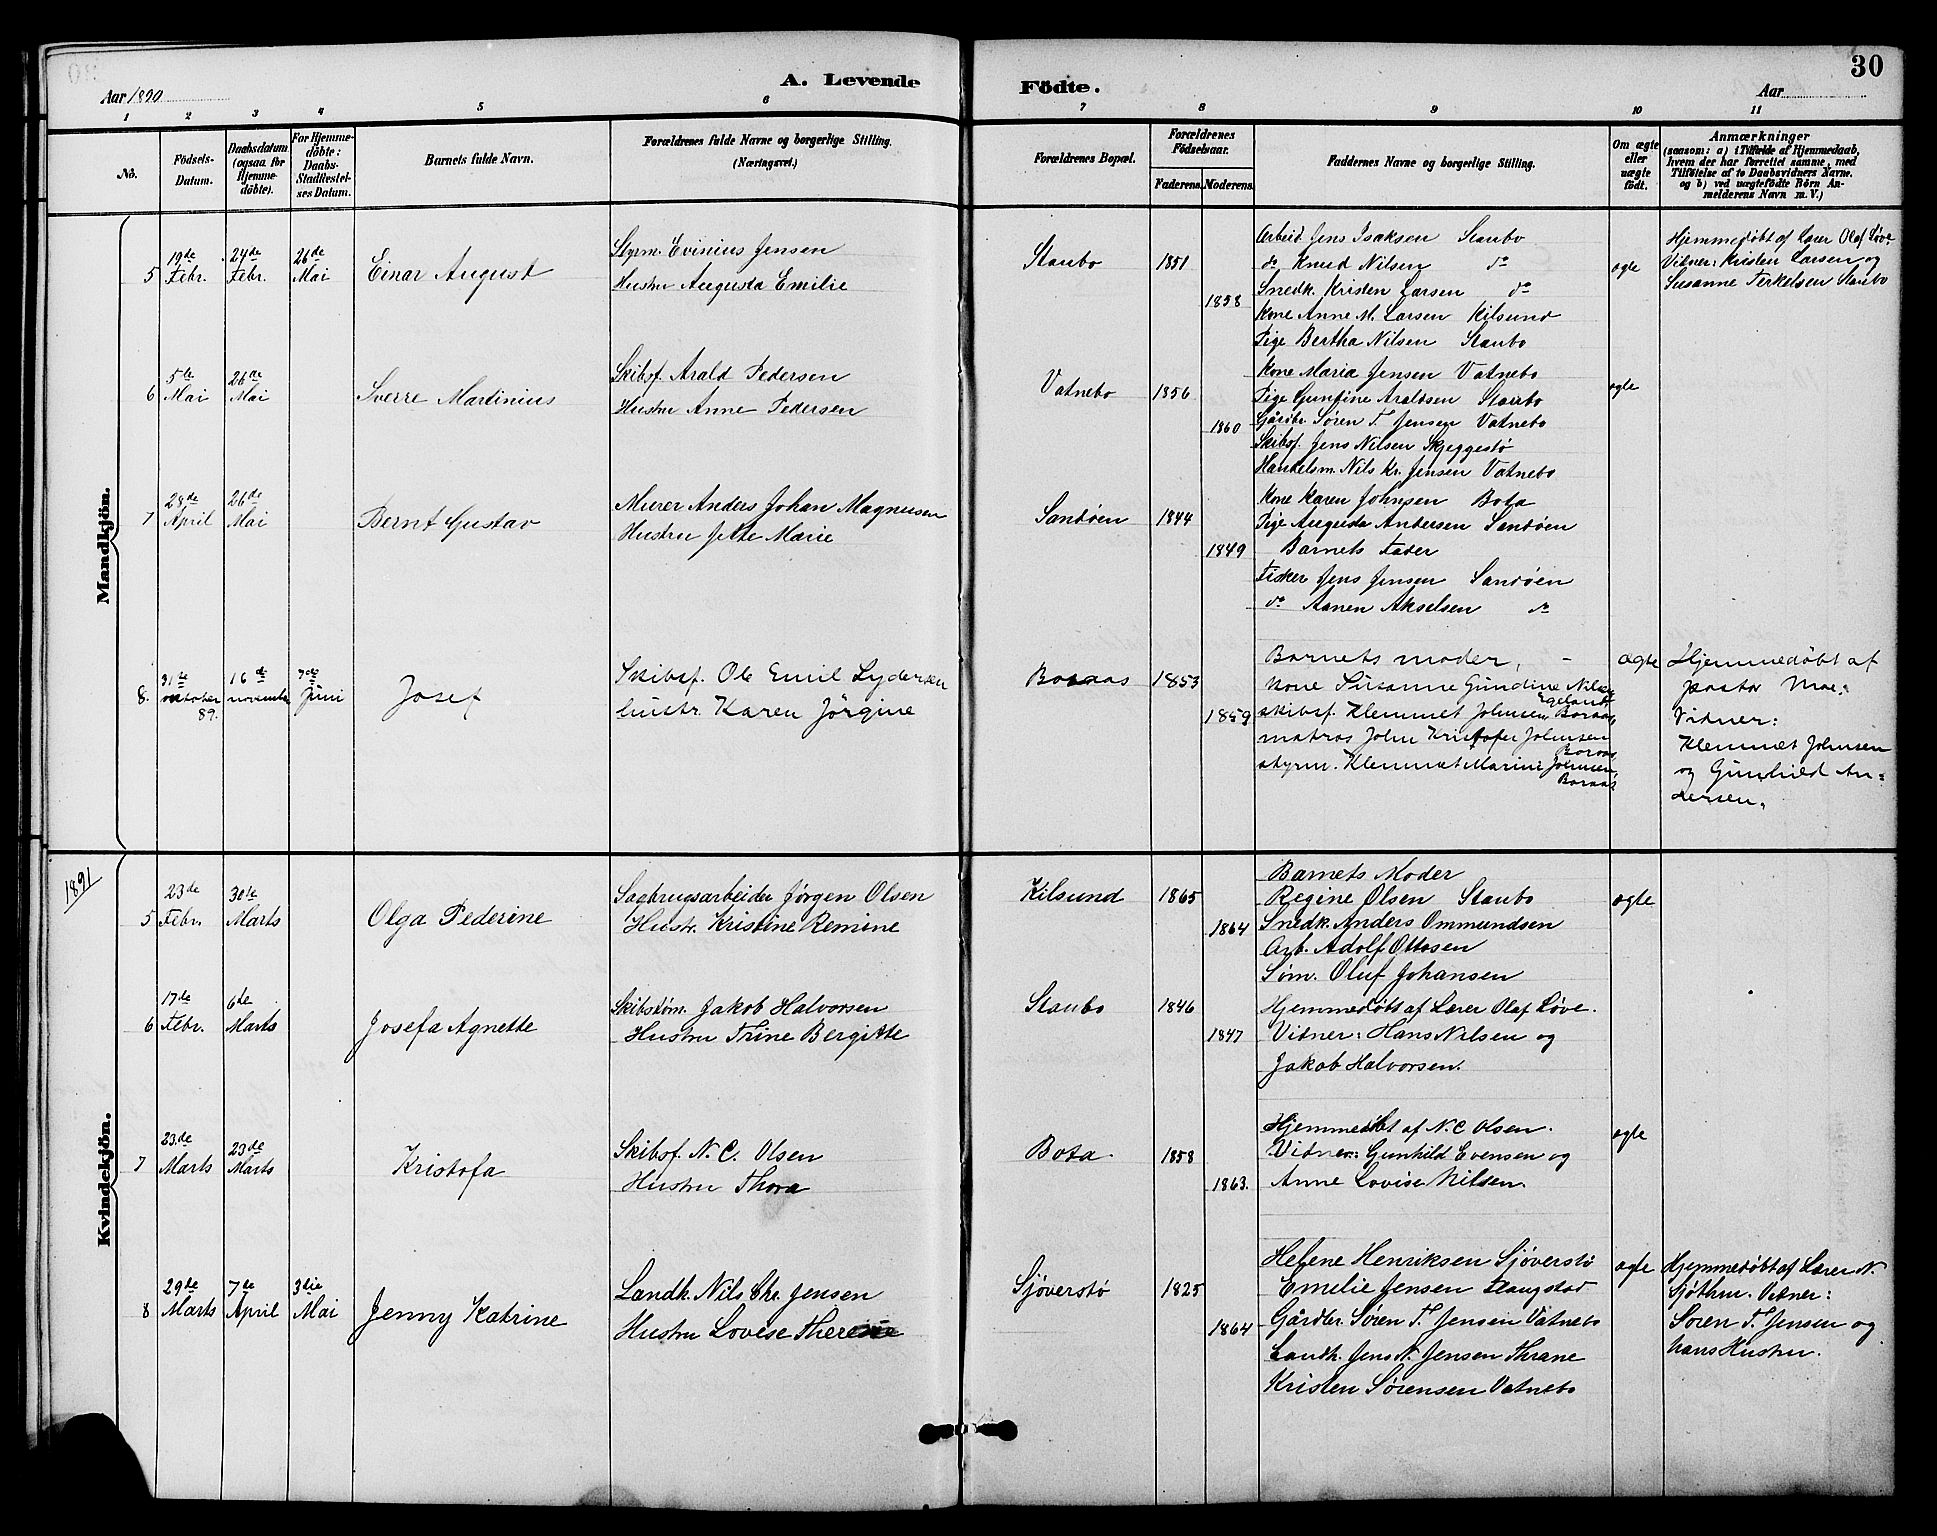 30
A. Levende Födte.
Aar 1890
Aar
1 2 3 4 5 6 7 8 9 10 11
No.
Födsels-Datum.
Daabsdatum. (ogsaa for Hjemme-döbte).
For Hjemme-döbte: Daabs-Stadfæstel-ses Datum.
Barnets fulde Navn.
Forældrenes fulde Navne og borgerlige Stilling.
(Næringsvei.)
Forældrenes Bopæl.
Forældrenes Födselsaar.
Faderens. Moderens.
Faddernes Navne og borgerlige Stilling.
Om ægte eller uægte födt.
Anmærkninger
(saasom: a) i Tilfælde af Hjemmedaab,
hvem der har forrettet samme, med
Tilföielse af to Daabsvidners Navne.
og b) ved uægtefödte Börn An-
melderens Navn m. V.)
Mandkjön.
5 19de Febr. 24de Febr. 26de Mai Einar August
Styrm. Evinius Jensen
Hustru Augusta Emilie
Staubo 1851 1858
Arbeid. Jens Isaksen Staubo
do Knud Nilsen do
Snedk. Kristen Larsen do
Kone Anne M. Larsen Kilsund
Pige Bertha Nilsen Staubo
ægte
Hjemmedøbt af Lærer Olaf Løve
Vidner: Kristen Larsen og
Susanne Terkelsen Staubo
6 5te Mai 26de Mai Sverre Martinius
Skibsf. Arald Pedersen
Hustru Anne Pedersen
Vatnebo 1856 1860
Kone Maria Jensen Vatnebo
Pige Gunfine Araldsen Staubo
Gårdbr. Søren T. Jensen Vatnebo
Skibsf. Jens Nilsen Skjeggestø
Handelsm. Nils Kr. Jensen Vatnebo
ægte
7 28de April 26de Mai Bernt Gustav
Murer Anders Johan Magnusen
Hustru Jette Marie
Sandøen 1844 1849
Kone Karen Johnsen Bota
Pige Augusta Andersen Sandøen
Barnets Fader
Fisker Jens Jensen Sandøen
do Aanen Akselsen do
8. 31te oktober 89. 16de november 7de Juni Josef
Skibsf. Ole Emil Lydersen
hustr. Karen Jörgine
Boraas 1853 1859
Barnets moder, -
kone Susanne Gundine Nilsen Egeland
skibsf. Klemmet Johnsen, Boraas
matros John Kristofer Johnsen Boraas
styrm. Klemmet Marini Johnsen, Boraas
ægte
Hjemmedøbt af
pastor Moe.
Vidner:
Klemmet Johnsen
og Gunhild An-
dersen.
1891
Kvindekjön.
5 23de Febr. 30te Marts Olga Pederine
Sagbrugsarbeider Jørgen Olsen
Hustr. Kristine Remine
Kilsund 1865 1864
Barnets Moder
Regine Olsen Staubo
Snedk. Anders Ommundsen
Arb. Adolf Ottosen
Søm. Oluf Johansen
ægte
6 17de Febr. 6te Marts Josefa Agnette
Skibstøm. Jakob Halvorsen
Hustru Trine Bergitte
Staubo 1846 1847
Hjemmedøbt af Lærer Olaf Løve.
Vidner: Hans Nilsen og
Jakob Halvorsen.
7 23.de Marts 23de Marts Kristofa
Skibsf. N. C. Olsen
Hustru Thora
Bota 1858 1863.
Hjemmedøbt af N. C Olsen.
Vidner: Gunhild Evensen og
Anne Lovise Nilsen.
ægte
8 29de Marts 7de April 3die Mai Jenny Katrine
Landh. Nils Chr. Jensen
Hustru Lovise Therese
Sjøverstø 1825 1864
Helene Henriksen Sjøverstø
Emilie Jensen Haugstad
Gårdbr. Søren T. Jensen Vatnebo
Landh. Jens N. Jensen Thrane
Kristen Sørensen Vatnebo
ægte
Hjemmedøbt af Lærer N.
Sjøthun. Vidner:
Søren T. Jensen og
hans Hustru.